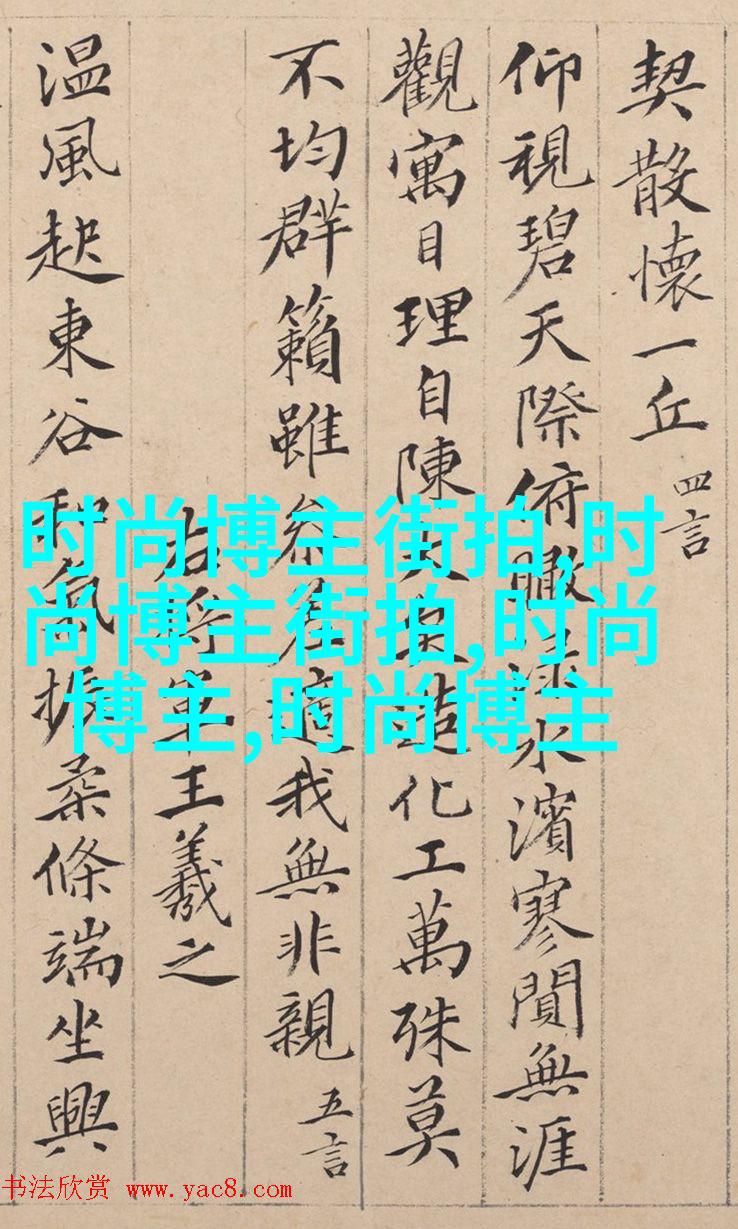 契散懷一丘 四言
仰視碧天際俯瞰淥水濱寥閴無涯
觀寓目理自陳大矣造化工萬殊莫
不均群籟雖參差適我無非親 五言
右將軍王羲之
温風起東谷和氣振柔條端坐興
时尚博主街拍,时
尚博主街拍,时尚
博主,时尚博主
书法欣赏 www.yac8.com